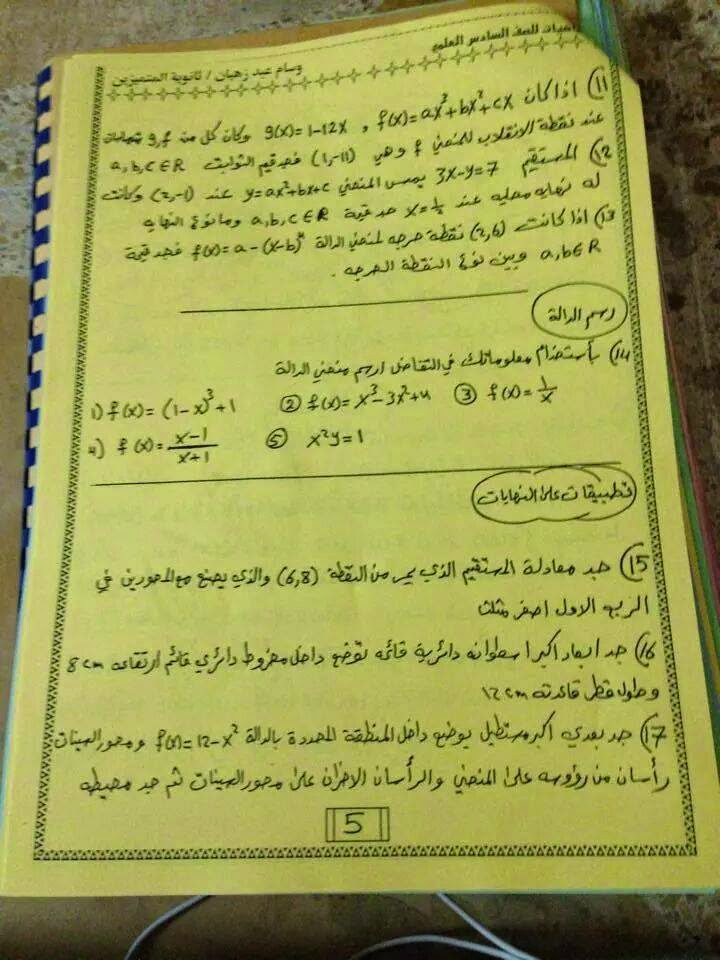 رياضيات للصف السادس العلمي
وسام عبد زهيان / ثانوية المتميزين
11) اذا كان f(x)=ax³+bx²+cx , g(x)=1-12x وكان كل من g , f يتماسان
عند نقطة الانقلاب للمنحني f وهي (1,-11) فجد قيم الثوابت a,b,c∈R
12) المستقيم 3x-y=7 يمس المنحني y=ax²+bx+c عند (2,-1) وكانت
له نهاية محلية عند x=½ جد قيمة a,b,c∈R وما نوع النهاية
13) اذا كانت (2,6) نقطة حرجة لمنحني الدالة f(x)=a-(x-b)⁴ فجد قيمة
a,b∈R وبين نوع النقطة الحرجة .
رسم الدالة
14) بأستخدام معلوماتك في التفاضل ارسم منحني الدالة
1) f(x)=(1-x)³+1 ② f(x)=x³-3x²+4 ③ f(x)=1/x
4) f(x)=(x-1)/(x+1) ⑤ x²y=1
تطبيقات على النهايات
15) جد معادلة المستقيم الذي يمر من النقطة (6,8) والذي يصنع مع المحورين في
الربع الاول اصغر مثلث
16) جد ابعاد اكبر اسطوانة دائرية قائمة توضع داخل مخروط دائري قائم ارتفاعه 8cm
وطول قطر قاعدته 12cm
17) جد بعدي اكبر مستطيل يوضع داخل المنطقة المحددة بالدالة f(x)=12-x² ومحور السينات
رأسان من رؤوسه على المنحني والرأسان الاخران على محور السينات ثم جد محيطه
5